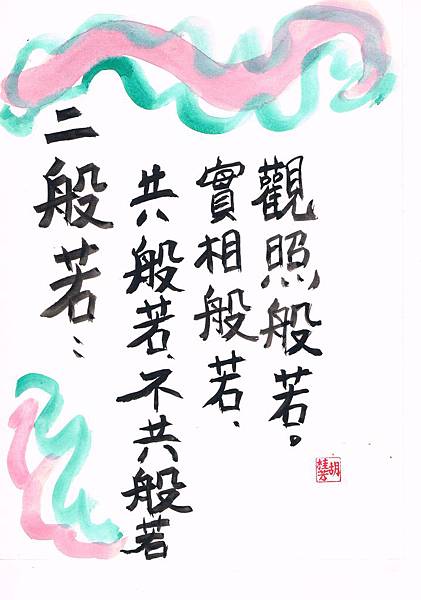 二般若：
共般若、不共般若
實相般若、
觀照般若。
胡桂